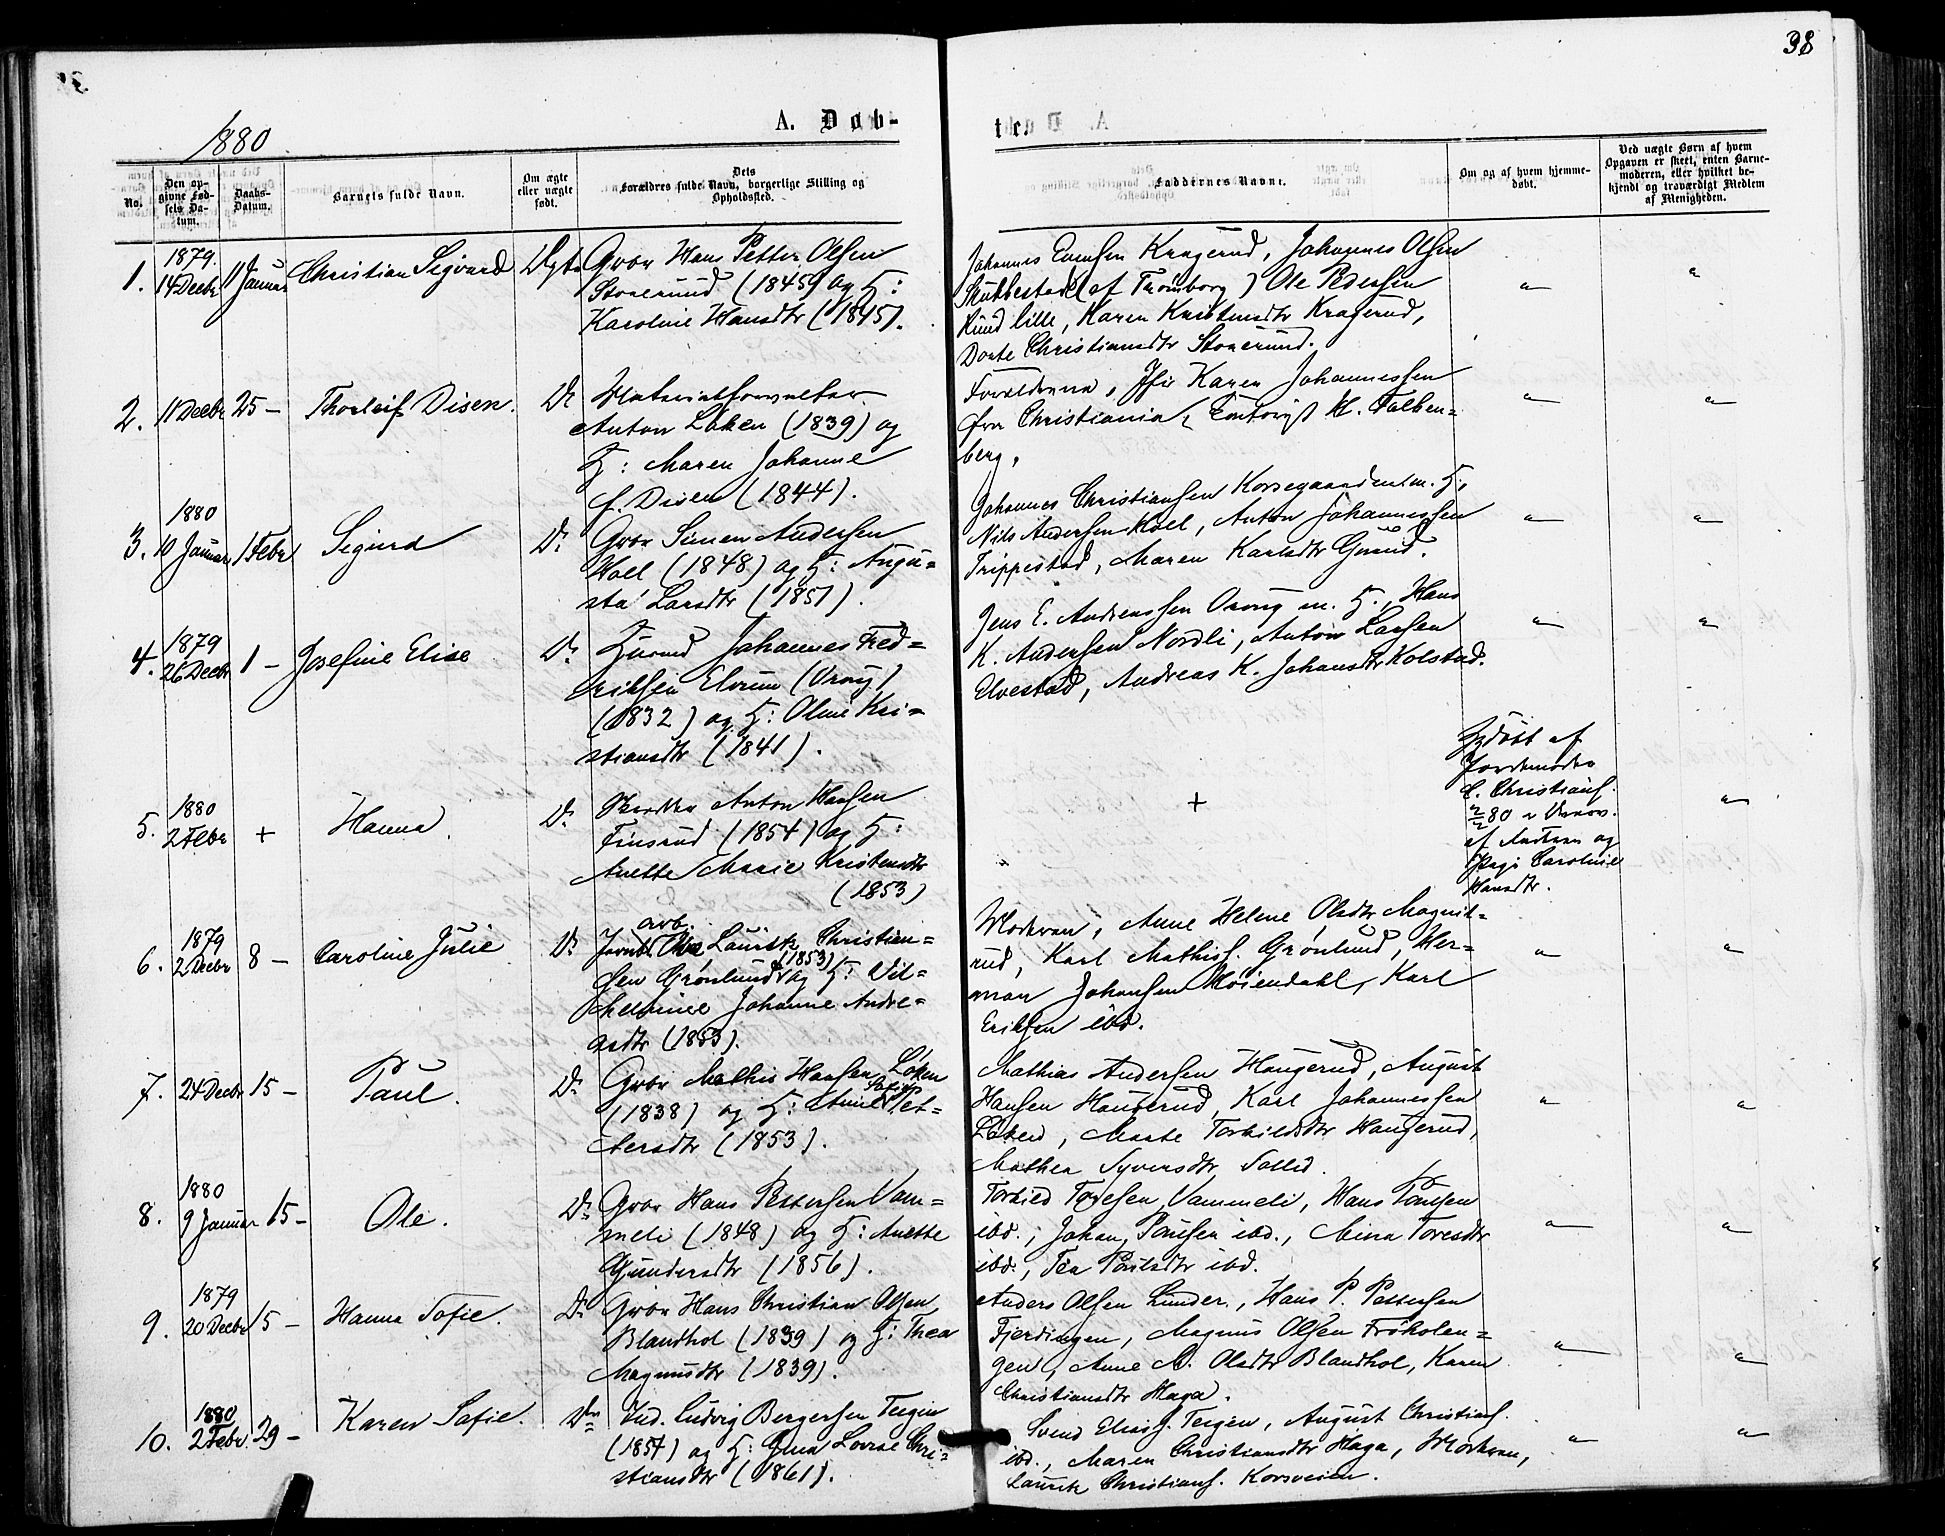 38
1880
A. Døb-
ten
No.
Den op-
givne Fød-
sels Da-
tum.
Daabs-
Datum.
Barnets fulde Navn.
Om ægte
eller uægte
født.
Dets
Forældres fulde Navn, borgerlige Stilling og
Opholdssted.
Faddernes Navne.
Om og af hvem hjemme-
døbt.
Ved uægte Børn af hvem
Opgaven er skeet, enten Barne-
moderen, eller hvilket be-
kjendt og troværdigt Medlem
af Menigheden.
1879
1. 14 Decbr 11 Januar Christian Sigvard Ægte Gbr Hans Petter Olsen
(1845) og H:
Karoline Hansdtr (1845).
Johannes Evensen Kragerud, Johannes Olsen
Skubbestad (af Trømborg) Ole Pedersen
Rud lille, Karen Kristensdtr Kragerud,
Dorte Christiansdtr
2. 11 Decbr 25 - Thorleif Disen. Do
Anton Løken (1839) og
H: Maren Johanne
f. Disen (1844).
Forældrene, Jfr Karen Johannessen
fra Christiania, H. Falken-
berg.
1880
3. 10 Januar 1 Febr Sigurd Do Gbr Simen Andersen
Hoel (1848) og H: Augu-
sta Larsdtr (1851).
Johannes Christiansen Korsegaarden m. H.,
Nils Andersen Hoel, Anton Johannessen
Trippestad, Maren Karlsdtr
1879
4. 26 Decbr 1 - Josefine Elise Do Husmd Johannes Fred-
riksen
(1832) og H: Oline Kri-
stiansdtr (1841).
Jens E. Andreassen m. H., Hans
K. Andersen Nordli, Anton Larsen
Elvestad, Andreas K. Johansdtr Kolstad.
1880
5. 2 Febr + Hanna. Do Anton Hansen
Finsrud (1854) og H:
Anette Marie Kristensdtr
(1853)
+
Hjdøbt af
Jordmoder
C. Christians.
2/2 80 i
af og
Pige Caroline
Hansdtr.
1879
6. 2 Decbr 8 - Caroline Julie Do arb.
Lauritz Christian-
sen Grønlund (1853) og H: Vil-
helmine Johanne Andre-
asdtr (1853).
Modren, Anne Helene Olsdtr Magnit-
rud, Karl Mathiss. Grønlund, Her-
man Johansen Møiendahl, Karl
Eriksen ibd.
7. 24 Decbr 15 - Paul. Do Gbr Mathis Hansen Løken
(1838) og H: Anne Sofie Pet-
tersdtr (1853).
Mathias Andersen Haugerud, August
Hansen Haugerud, Karl Johannessen
Løken, Marte Torkildsdtr Haugerud,
Mathea Syversdtr
1880
8. 9 Januar 15 - Ole. Do Gbr Hans Pettersen Vam-
meli (1848) og H: Anette
Gundersdtr (1856).
Torkild Toresen Vammeli, Hans Paulsen
ibd.; Johan Paulsen ibd., Mina Toresdtr
ibd., Tea Paulsdtr ibd.
1879
9. 20 Decbr 15 - Hanna Sofie. Do Gbr Hans Christian Olsen
Blandhol (1839) og H: Thea
Magnusdtr (1839).
Anders Olsen Lunder, Hans P. Pettersen
Fjerdingen, Magnus Olsen Frøholen-
gen, Anne M. Olsdtr Blandhol, Karen
Christiansdtr Haga.
1880
10. 2 Febr. 29 - Karen Sofie. Do Ind. Ludvig Bergersen Teigen
(1857) og H: Gina Lovise Chri-
stiansdtr (1861).
Svend Eliass. Teigen, August Christians.
ibd., Maren Christiansdtr Haga, Modren,
Lauritz Christians. Korsveien.